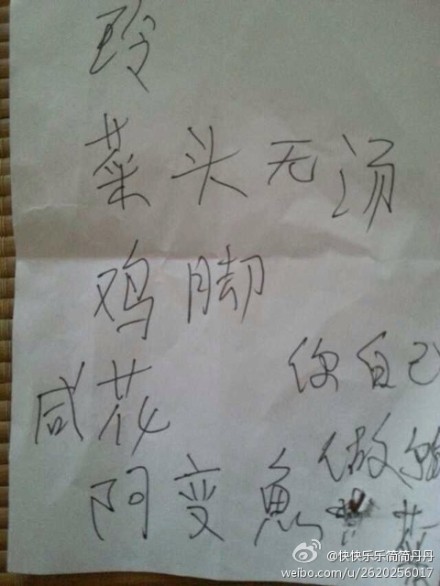 玲
菜头无汤
鸡脚
咸花
阿变鱼
你自己
做
菜
@快快乐乐简简丹丹
weibo.com/u/2620256017